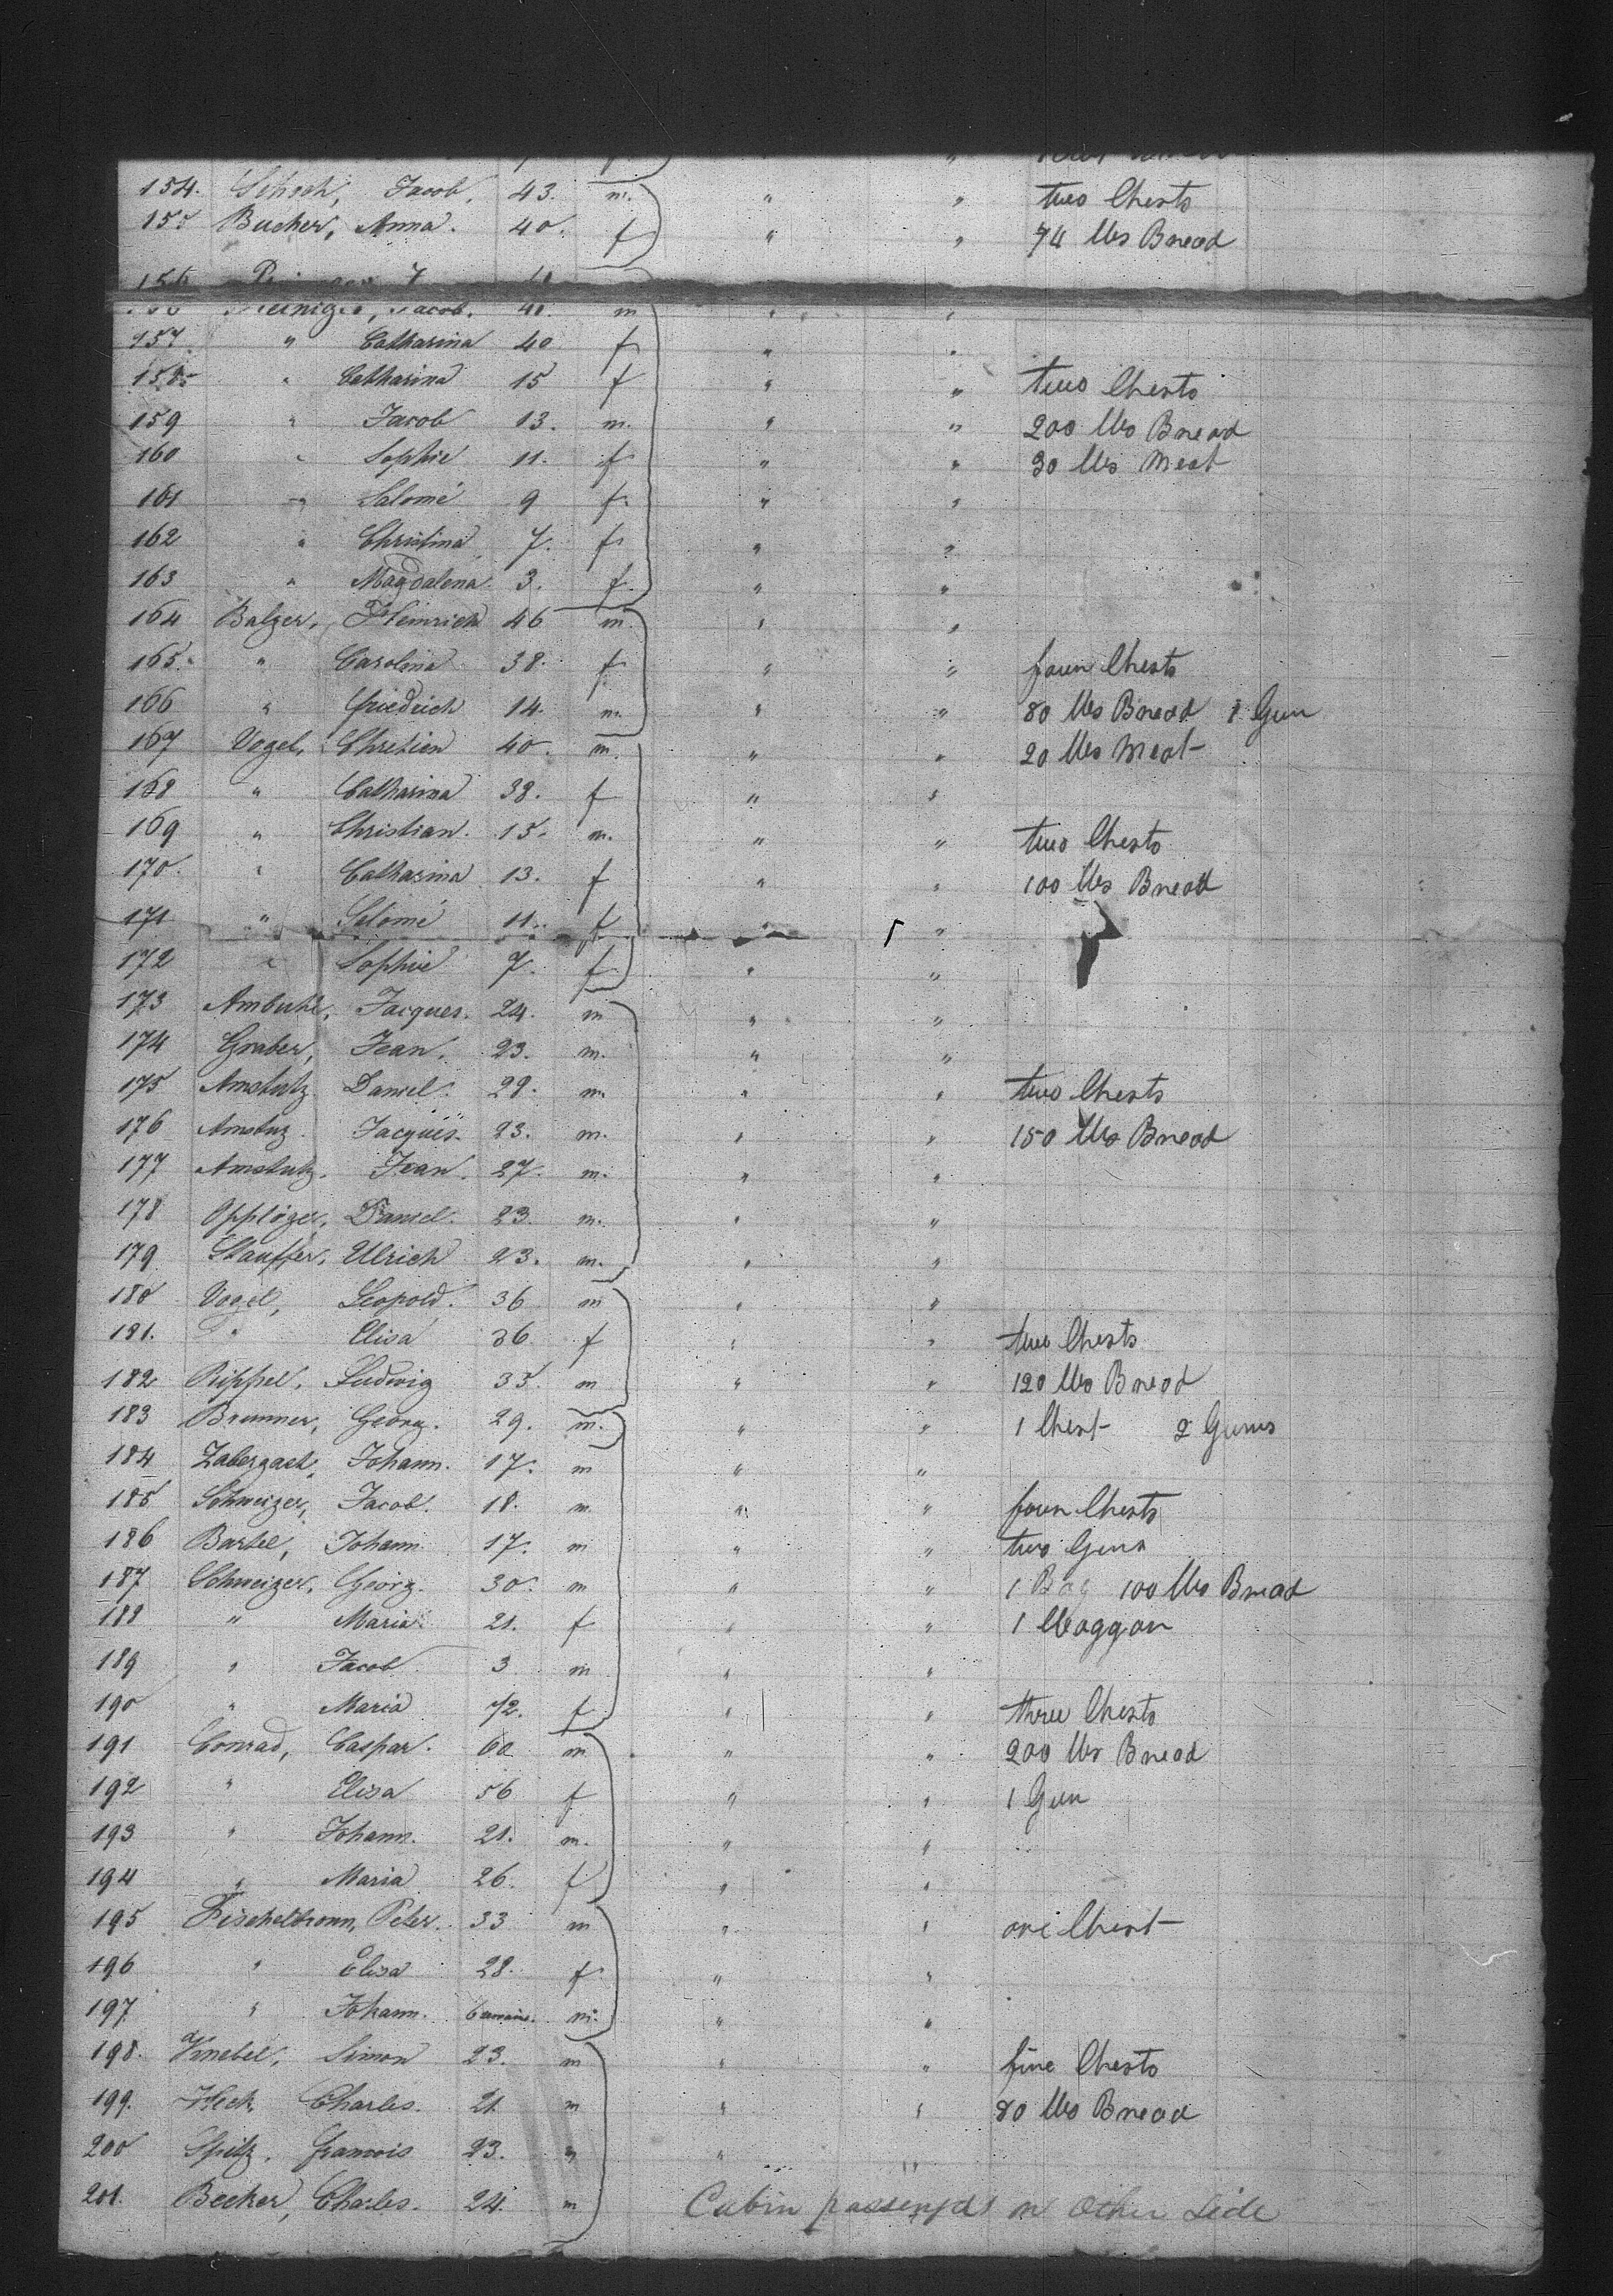 154. Schoch, Jacob, 43. m. " " two Chests
155 Bucher, Anna. 40. f " " 74 lbs Bread
156
Reiniger, Jacob. 40. m " "
157 " Catharina 40 f " "
158 " Catharina 15 f " " two Chests
159 " Jacob 13. m. " " 200 lbs Bread
160 " Sophie 11. f " " 30 lbs Meat
161 " Salomé 9 f. " "
162 " Christina 7. f " "
163 " Magdalena 3. f. " "
164 Balzer, Heinrich 46 m. " "
165. " Carolina 38. f " " four Chests
166 " Friedrich 14. m. " " 80 lbs Bread 1 Gun
167 Vogel, Chretien 40. m. " " 20 lbs Meat
168 " Catharina 38. f " "
169 " Christian. 15. m. " " two Chests
170. " Catharina 13. f " " 100 lbs Bread
171 " Salomé 11. f " "
172 " Sophie 7. f " "
173 Ambuhl, Jacques. 24. m " "
174 Graber, Jean. 23. m. " "
175 Amstutz Daniel. 29. m. " " two Chests
176 Amstuz Jacques. 23. m. " " 150 lbs Bread
177 Amstutz. Jean. 27. m. " "
178 Opplöger, Daniel. 23. m. " "
179 Stauffer, Ulrich 23. m. " "
180 Vogel, Leopold. 36 m " "
181. " Elisa 36 f " " two Chests
182 Rippel, Ludwig 35. m " " 120 lbs Bread
183 Brunner, Georg. 29. m. " " 1 Chest 2 Guns
184 Johann. 17. m " "
185 Schweizer, Jacob. 18. m. " " four Chests
186 Bartel, Johann 17. m " " two Guns
187 Schweizer, Georg. 30. m " " 1 Bag 100 lbs Bread
188 " Maria 21. f " " 1 Waggon
189 " Jacob 3 m " "
190 " Maria f " " three Chests
191 Conrad, Caspar. 60 m " " 200 lbs Bread
192 " Elisa 56 f " " 1 Gun
193 " Johann. 21. m. " "
194 " Maria 26. f " "
195 Fischelbronn, Peter. 33 m " " one Chest
196 " Elisa 28. f " "
197 " Johann. m. " "
198. Knebel, Simon 23. m " " five Chests
199. Heck, Charles. 21. m " " 80 lbs Bread
200 Spitz, Francois 23. " " "
201. Becker, Charles. 24. m Cabin passengers on other side